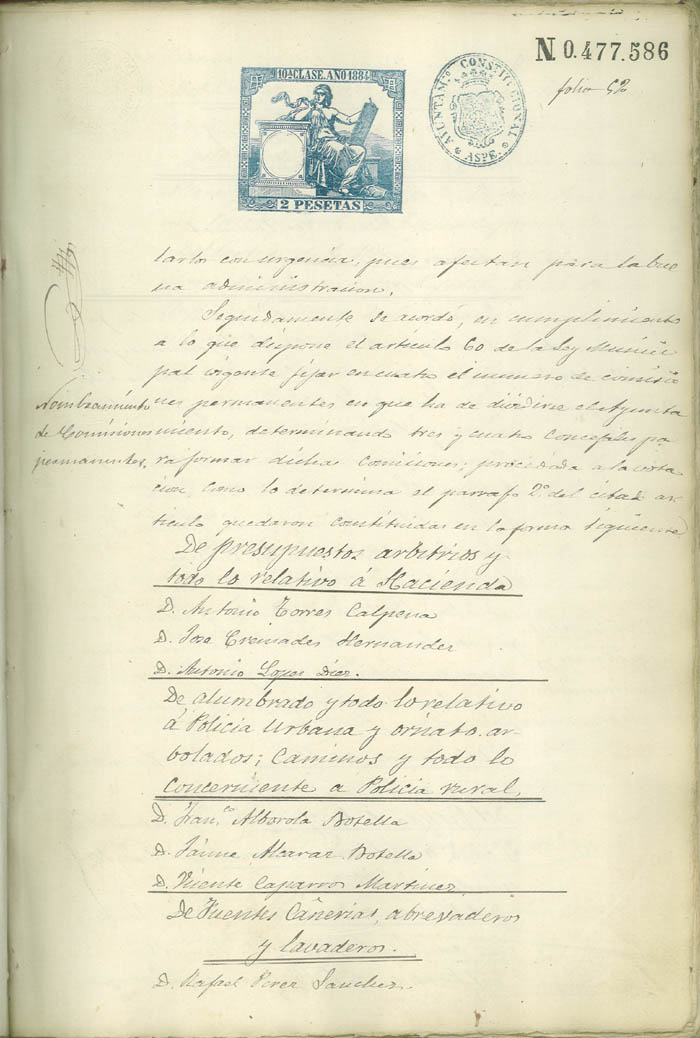 N. 0.477.586
folio 52
10ª CLASE. AÑO 1884
2 PESETAS
AYUNTAMTO CONSTITUCIONAL
ASPE.
tarlos con urgencia, pues afectan para la bue
na administracion.
Seguidamente se acordó, en cumplimiento
a lo que dispone el artículo 60 de la Ley Munici
pal vigente fijar en cuatro el numero de comisio
nes permanentes en que ha de dividirse el Ayunta
miento, determinando tres y cuatro concejales pa
ra formar dichas comisiones; procedida a la vota
cion, como lo determina el parrafo 2º del citado ar
ticulo quedaron constituidas en la forma siguiente
Nombramiento
de Comisiones
permanentes.
De presupuestos arbitrios y
todo lo relativo á Hacienda
D. Antonio Torres Calpena
D. Jose Cremades Hernandez
D. Antonio Lopez Diez.
De alumbrado y todo lo relativo
á Policia Urbana y ornato. ar-
bolados; caminos y todo lo
concerniente a Policia rural,
D. Franco Alberola Botella
D. Jaime Alcaraz Botella
D. Vicente Caparros Martinez
De Fuentes Cañerias, abrevaderos
y lavaderos.
D. Rafael Perez Sanchez.